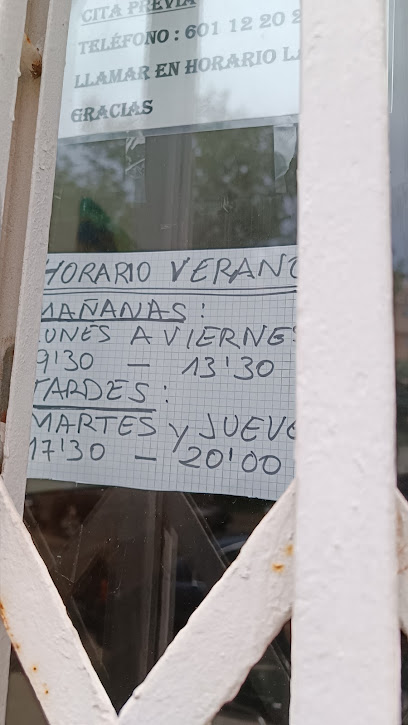 CITA PREVIA
TELÉFONO : 601 12 20 2
LLAMAR EN HORARIO LA
GRACIAS
HORARIO VERANO
MAÑANAS :
LUNES A VIERNES
9'30 - 13'30
TARDES :
MARTES y JUEVE
17'30 - 20'00